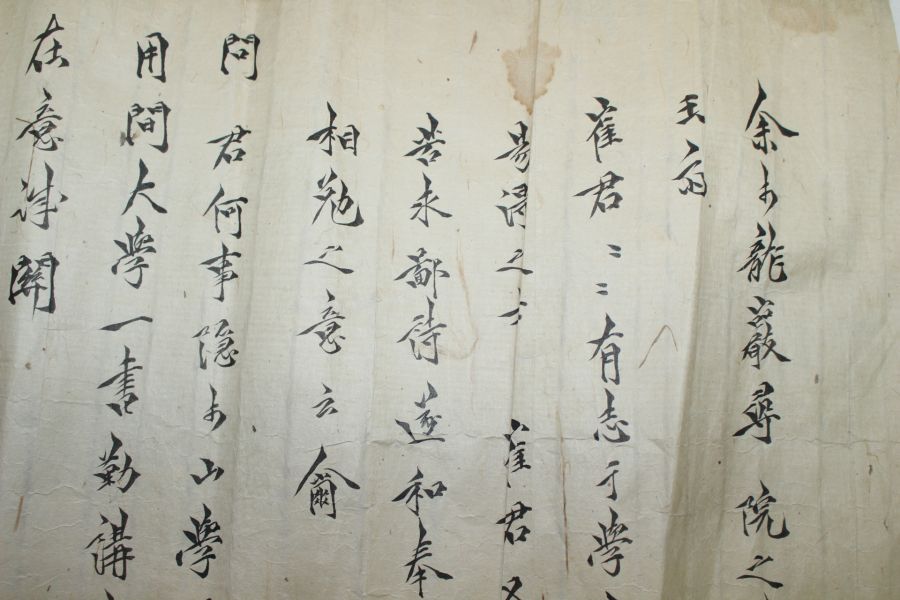 余於龍巖尋 院之
主翁
崔君〻〻有志于學
易得之方 崔君又
苦求鄙詩遂和奉
相勉之意云爾
問 君何事隱於山學
用間大學一書勤講
在意誠關